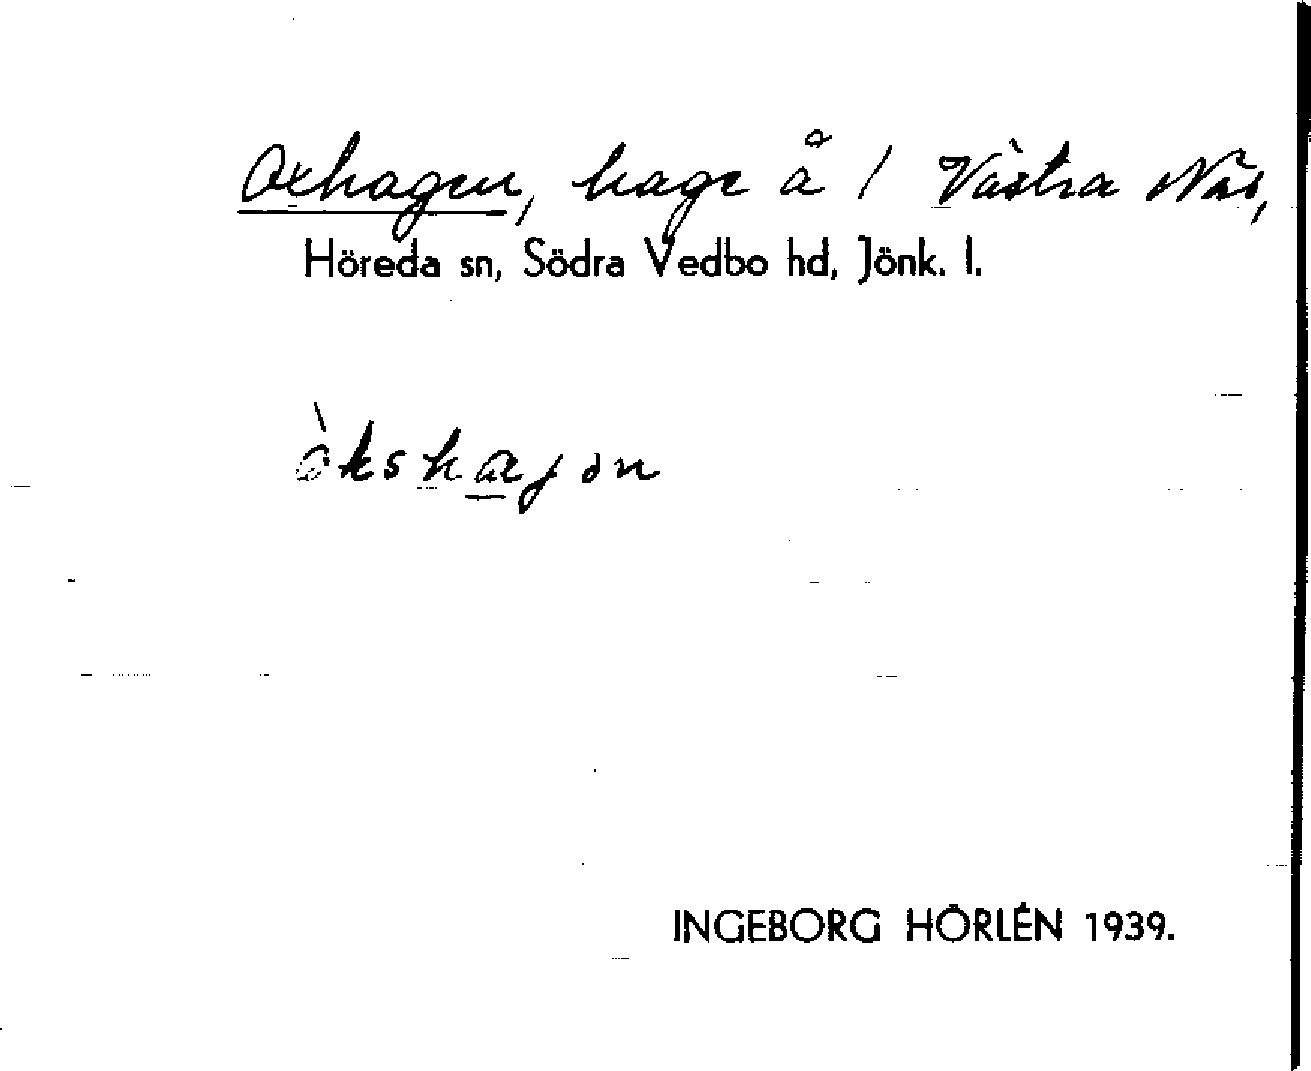 Oxhagen, hage å / Västra Näs,
Höreda sn, Södra Vedbo hd, Jönk. l.
òkshagən
INGEBORG HÖRLÉN 1939.